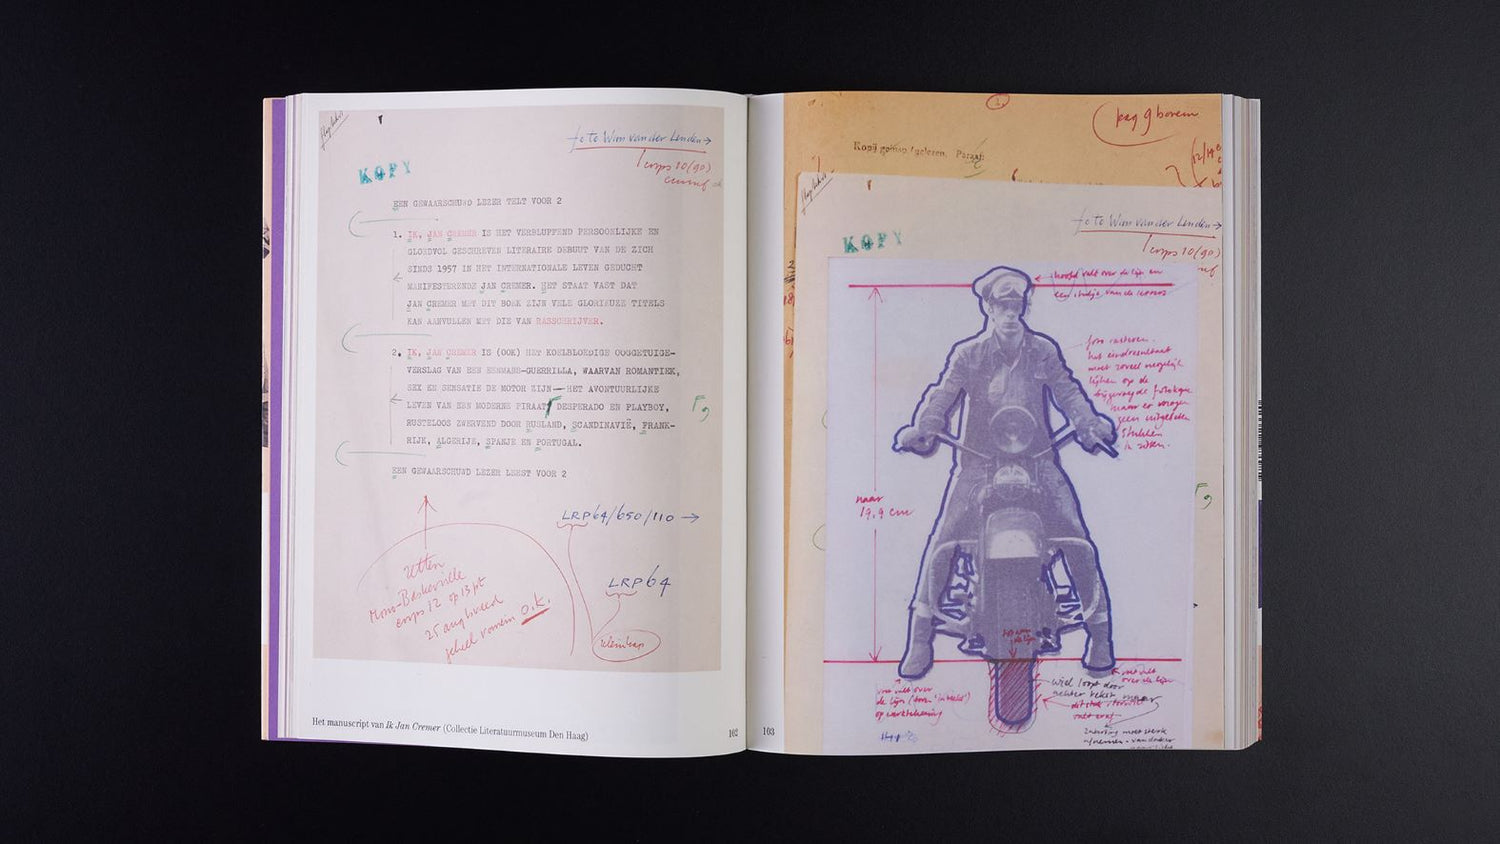 fo te Wim van der Linden →
corps 10 (90)
KOPY
EEN GEWAARSCHUWD LEZER TELT VOOR 2
1. IK, JAN CREMER IS HET VERBLUFFEND PERSOONLIJKE EN
GLOEDVOL GESCHREVEN LITERAIRE DEBUUT VAN DE ZICH
SINDS 1957 IN HET INTERNATIONALE LEVEN GEDUCHT
MANIFESTERENDE JAN CREMER. HET STAAT VAST DAT
JAN CREMER MET DIT BOEK ZIJN VELE GLORIEUZE TITELS
KAN AANVULLEN MET DIE VAN RASSCHRIJVER.
2. IK, JAN CREMER IS (OOK) HET KOELBLOEDIGE OOGGETUIGE-
VERSLAG VAN EEN EENMANS-GUERRILLA, WAARVAN ROMANTIEK,
SEX EN SENSATIE DE MOTOR ZIJN—HET AVONTUURLIJKE
LEVEN VAN EEN MODERNE PIRAAT, DESPERADO EN PLAYBOY,
RUSTELOOS ZWERVEND DOOR RUSLAND, SCANDINAVIË, FRANK-
RIJK, ALGERIJE, SPANJE EN PORTUGAL.
EEN GEWAARSCHUWD LEZER LEEST VOOR 2
LRP64/650/110 →
LRP64
Zetten
Mono-Baskerville
corps 12 op 13 pt
25 aug breed
geheel romein o.k.
kleinkap
Het manuscript van Ik Jan Cremer (Collectie Literatuurmuseum Den Haag)
102
103
pag 9 boven
Kopij gelezen. Paraaf:
fo te Wim van der Linden →
corps 10 (90)
KOPY
hoofd valt over de lijn en
foto rasteren.
het eindresultaat
moet zoveel mogelijk
lijken op de
bijgevoegde fotokopie
maar er mogen
geen uitgebeten
stukken
in zitten.
naar
19,9 cm
over de lijn
de lijn
op aanteekening
wiel loopt door
achter tekst maar